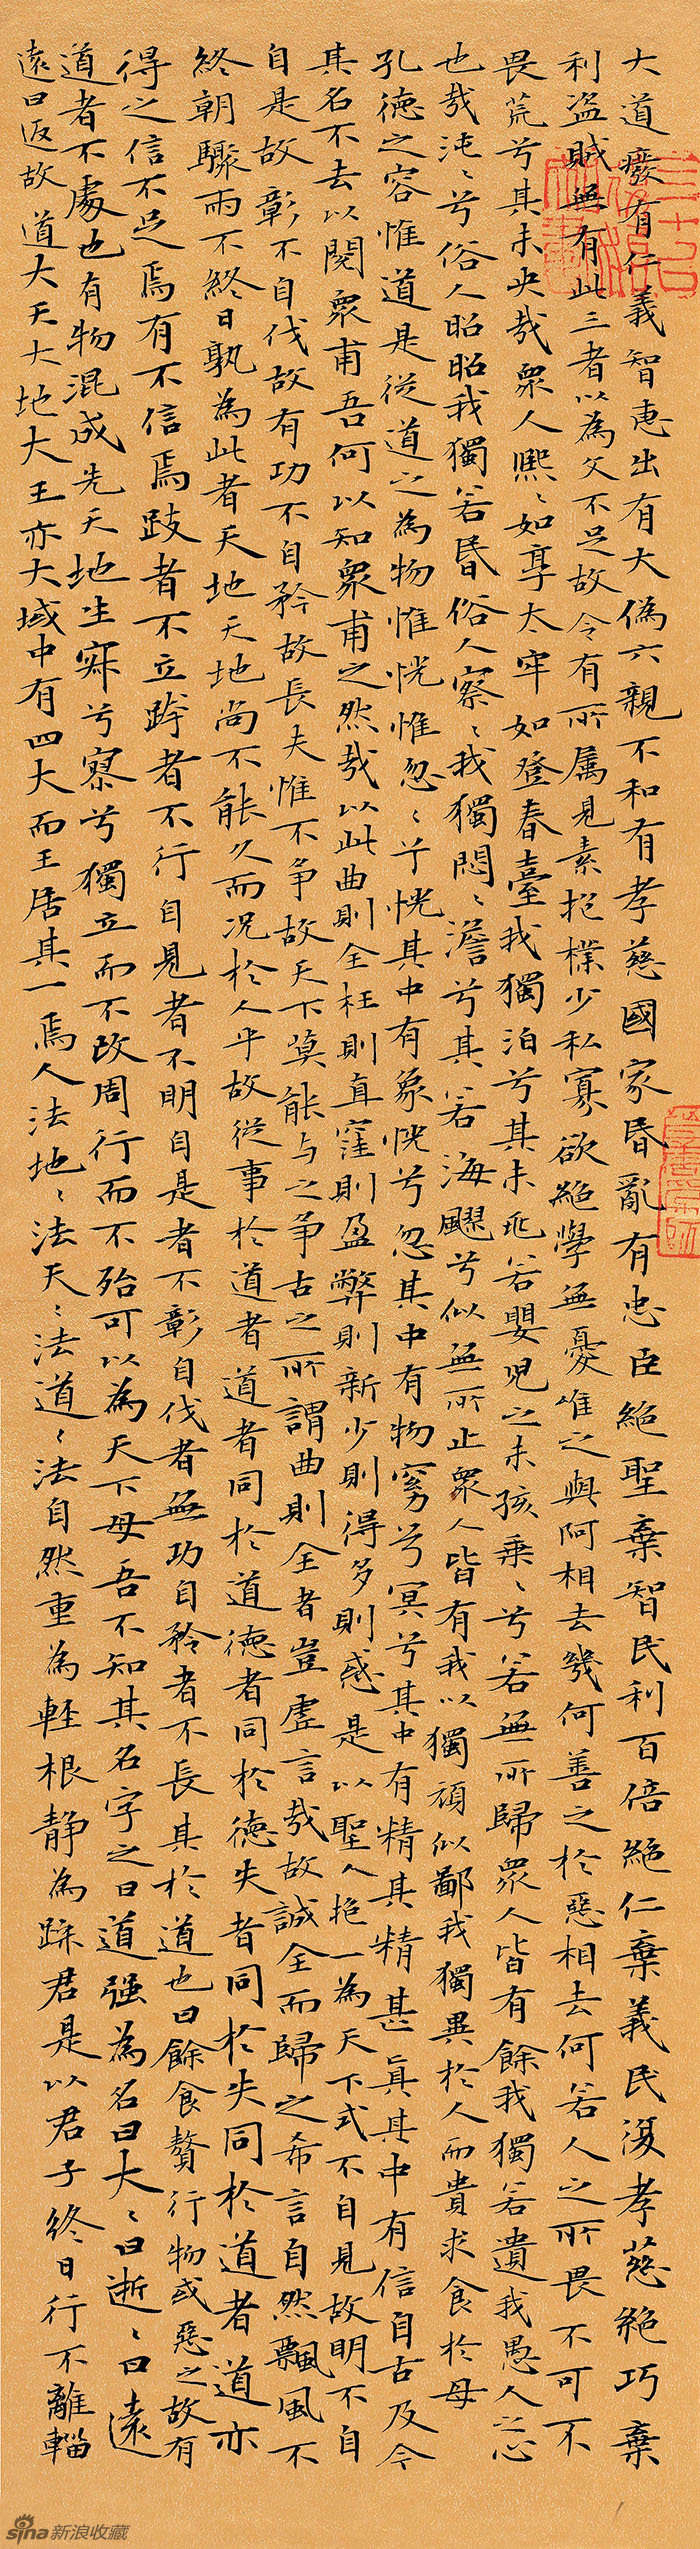 大道癈有仁義智惠出有大偽六親不和有孝慈國家昏亂有忠臣絕聖棄智民利百倍絕仁棄義民復孝慈絕巧棄
利盜賊無有此三者以為文不足故令有所属見素抱樸少私寡欲絕學無憂唯之與阿相去幾何善之於惡相去何若人之所畏不可不
畏荒兮其未央哉眾人熙〻如享太牢如登春臺我獨泊兮其未兆若嬰兒之未孩乗〻兮若無所歸眾人皆有餘我獨若遺我愚人之心
也哉沌〻兮俗人昭昭我獨若昏俗人察〻我獨悶〻澹兮其若海飂兮似無所止眾人皆有我以獨頑似鄙我獨異於人而貴求食於母
孔德之容惟道是從道之為物惟恍惟忽〻兮恍其中有象恍兮忽其中有物窈兮冥兮其中有精其精甚真其中有信自古及今
其名不去以閱眾甫吾何以知眾甫之然哉以此曲則全枉則直窪則盈弊則新少則得多則惑是以聖人抱一為天下式不自見故明不自
自是故彰不自伐故有功不自矜故長夫惟不爭故天下莫能与之爭古之所謂曲則全者豈虛言哉故誠全而歸之希言自然飄風不
終朝驟雨不終日孰為此者天地天地尚不能久而況於人乎故從事於道者道者同於道德者同於德失者同於失同於道者道亦
得之信不足焉有不信焉跂者不立跨者不行自見者不明自是者不彰自伐者無功自矜者不長其於道也曰餘食贅行物或惡之故有
道者不處也有物混成先天地生寂兮寥兮獨立而不改周行而不殆可以為天下母吾不知其名字之曰道強為名曰大〻曰逝〻曰遠
遠曰返故道大天大地大王亦大域中有四大而王居其一焉人法地〻法天〻法道〻法自然重為輕根静為躁君是以君子終日行不離輜
sina新浪收藏